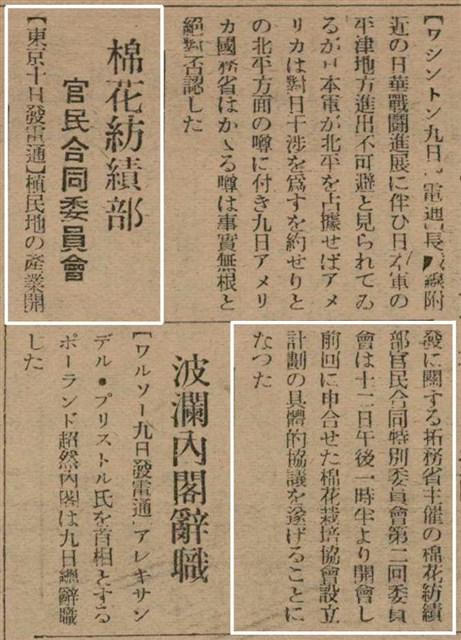 【ワシントン九日 電通】長 線附
近の日華戰鬪進展に伴ひ日本軍の
平津地方進出不可避と見られてゐ
るが日本軍が北平を占據せばアメ
リカは對日干渉を爲すを約せりと
の北平方面の噂に付き九日アメリ
カ國務省はかゝる噂は事實無根と
絶對否認した
棉花紡績部
官民合同委員會
【東京十日發電通】植民地の產業開
發に關する拓務省主催の棉花紡績
部官民合同特別委員會第二回委員
會は十二日午後一時半より開會し
前回に申合せた棉花栽培協會設立
計劃の具體的協議を遂げることに
なつた
波瀾內閣辭職
【ワルソー九日發電通】アレキサン
デル・プリストル氏を首相とする
ポーランド超然內閣は九日總辭職
した